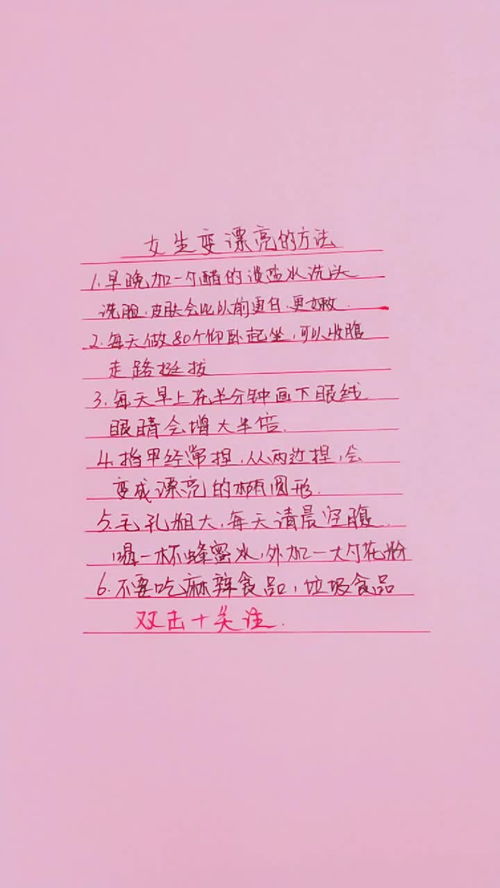 女生变漂亮的方法
1.早晚加一勺醋的淡盐水洗头
洗脸,皮肤会比以前更白.更嫩.
2.每天做80个仰卧起坐,可以收腹
走路挺拔
3.每天早上花半分钟画下眼线
眼睛会增大半倍.
4.指甲经常捏,从两边捏,会
变成漂亮的椭圆形.
5.毛孔粗大,每天清晨空腹
喝一杯蜂蜜水,外加一大勺花粉
6.不要吃麻辣食品,垃圾食品
双击+关注.